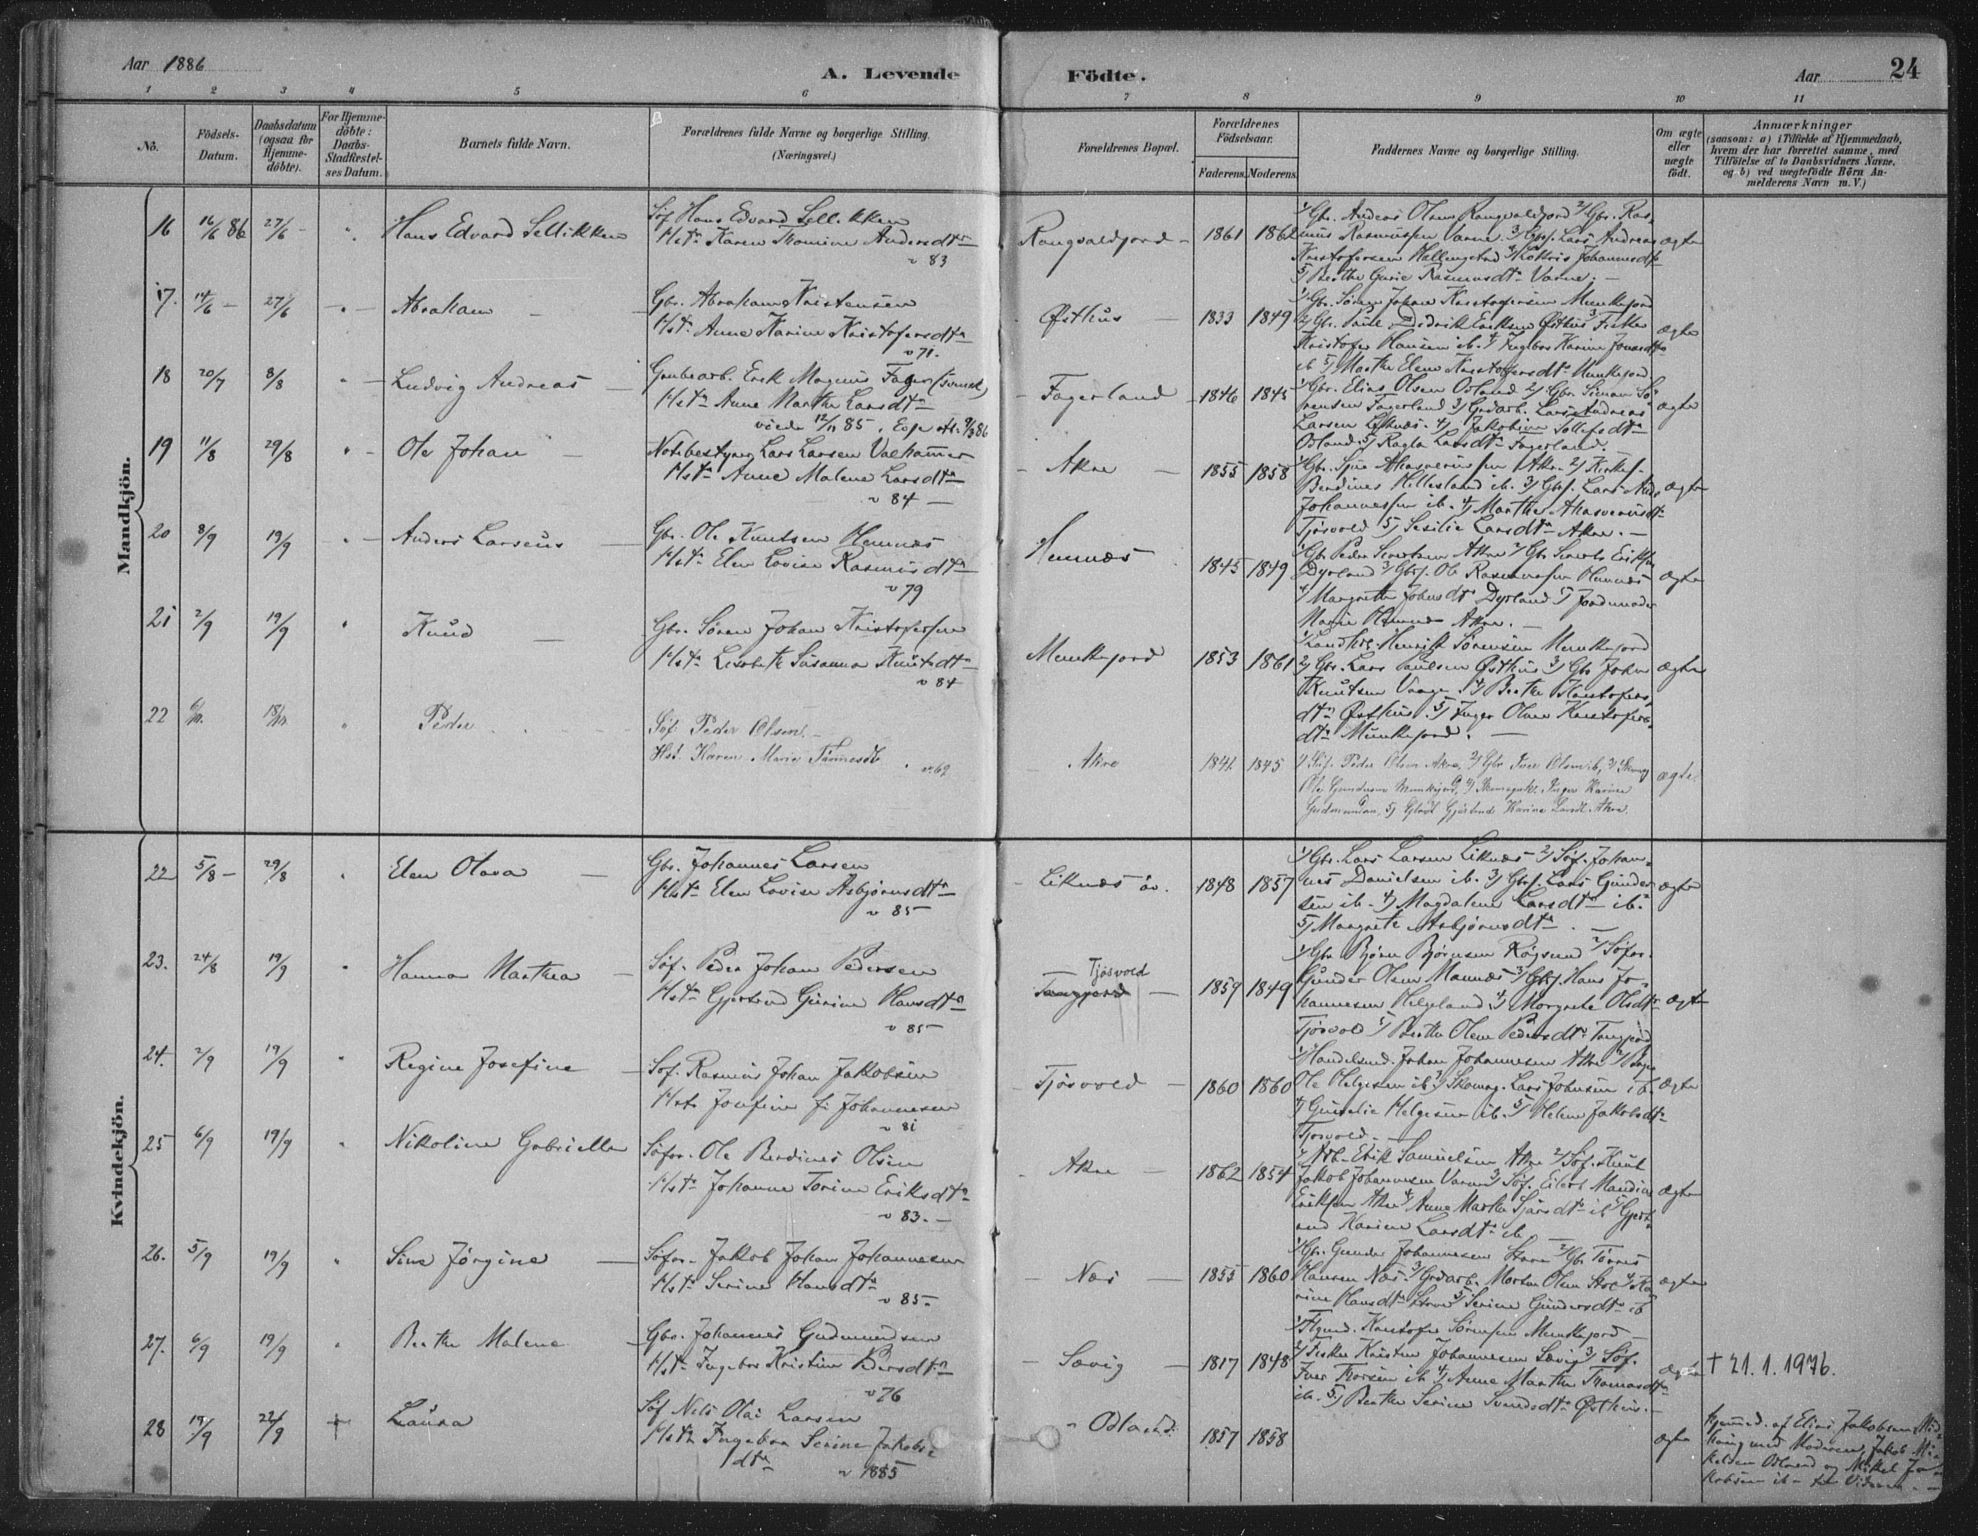 Aar 1886
A. Levende Födte.
Aar 24
1 2 3 4 5 6 7 8 9 10 11
No.
Födsels-Datum.
Daabsdatum (ogsaa for Hjemme-döbte).
For Hjemme-döbte: Daabs-Stadfæstel-ses Datum.
Barnets fulde Navn.
Forældrenes fulde Navne og borgerlige Stilling.
(Næringsvei.)
Forældrenes Bopæl.
Forældrenes Födselsaar.
Faderens. Moderens.
Faddernes Navne og borgerlige Stilling.
Om ægte eller uægte födt.
Anmærkninger
(saasom: a) i Tilfælde af Hjemmedaab,
hvem der har forrettet samme, med
Tilföielse af to Daabsvidners Navne,
og b) ved uægtefödte Börn An-
melderens Navn m. V.)
Mandkjön.
16 16/6 86 27/6 Hans Edvard Sellikken
Söf Hans Edvard Sellikken
Hst. Karen Tomine Andersdtr
v 83
Rangvaldjord 1861 1862
1/ Gbr. Anders Olsen Rangvaldjord 2/ Gbr. Ras-
mus Rasmussen Varne 3/ Gbrs. Lars Andreas
Kristofersen Hellingstad
5/ Berthe Gurie Rasmusdtr Varne.
ægte
17. 14/6 27/6 Abraham
Gbr. Abraham Kristensen
Hst. Anne Karine Kristofersdtr
v 71.
Østhus 1833 1849
1/ Gbr. Sören Johan Kristofersen Munkejord
2/ Gbr. Didrik Eriksen Østhus 3 Fisker
Kristofer Hansen ib. 4/ Ingebor Karine
ib 5/ Marthe Elene Kristofersdtr Munkejord
ægte
18 20/7 8/8 Ludvig Andreas
Grubearb. Erik Magnus Fager (svensk)
Hst. Anne Marthe Larsdtr
viede 12/11 85
Fagerland 1846 1845
1/ Gbr. Elias Olsen Osland 2/ Gbr. Simon Sö-
rensen Fagerland 3/ Grdarb. Lars Andreas
Larsen Liknes. 4/ Jakobine
Osland 5/ Larsdtr Fagerland.
ægte
19 11/8 29/8 Ole Johan
Notebestyrer Lars Larsen Valhammer
Hst. Anne Malene Larsdtr
v 84
Akre 1855 1858
1/ Gbr. Akre 2/ Kirkes.
Berdines Hellesland ib. 3/ Gbrs. Lars
Johannessen ib. 4/ Marthe Ahasverusdtr
Tjösvold 5/ Sesilie Larsdtr Akre.
ægte
20 8/9 19/9 Anders Larseus
Gbr. Ole Knutsen Hemnæs
Hst. Elen Lovise Rasmusdtr
v 79
Hemnæs 1845 1849
1/ Gbr. Peder Akre 2/ Gbr.
Dyrland 3/ Gbrs. Ole Rasmussen Hemnæs
4/ Margrethe Johnsdtr Dyrland 5/ Jordmoder
Marie Akre.
ægte
21 2/9 19/9 Knud
Gbr. Sören Johan Kristofersen
Hst. Lisabeth Susanna Knutsdtr
v 84
Munkejord 1853 1861
1/ Landhdl. Henrik Sörensen Munkejord
2/ Gbr. Lars Paulsen Østhus 3/ Gbr. Johan
Knutsen Vaage 4/ Berthe Kristofers-
dtr Østhus 5/ Inger Olene Kristofers-
dtr Munkejord.
ægte
22 18/ Peder
Söf Peder Olsen
Hst. Karen Marie Tönnesdtr v. 69
Akre 1841 1845
1/ Söf. Peder Olsen Akre, 2/ Gbr Iver Olsen ib, 3/
Ole Gundersen Munkejord, 4/ Inger Karine
Gudmundsen, 5/ Karine Larsdt. Akre.
ægte
Kvindekjön.
22 5/8 29/8 Elen Olava
Gbr. Johannes Larsen
Hst. Elen Lovise Asbjörnsdtr
v 85
Liknæs öv. 1848 1857
1/ Gbr. Lars Larsen Liknæs 2/ Söf. Johan-
nes Danielsen ib. 3/ Gbrs. Lars Gunder-
sen ib. 4/ Magdalene Larsdtr ib.
5/ Margrete Asbjörnsdtr.
ægte
23. 24/8 19/9 Hanna Marthea
Söf. Peder Johan Pedersen
Hst. Gjertrud Gurine Hansdtr
v 85
Tjösvold
Tangjerd 1859 1849
1/ Gbr. Björn Björnsen Röysund 2/ Söfar.
Gunder Olsen Mannæs 3/ Gbrs. Hans Jo-
hannesen Helgeland 4/ Margrete Olsdtr
Tjösvold 5/ Berthe Olene Pedersdtr Tangjerd
ægte
24. 2/9 19/9 Regine Josefine
Söf. Rasmus Johan Jakobsen
Hst. Josefine f. Johannesen
v 81
Tjösvold 1860 1860
1/ Handelsmd. Johan Johannesen Akre 2/
Ole Helgesen ib 3/ Skomag. Lars Johnsen ib
4/ Gunelie Helgesen ib. 5/ Helene Jakobsdtr
Tjösvold.
ægte
25 6/9 19/9 Nikoline Gabrielle
Söfar. Ole Berdines Olsen
Hst. Johanne Torine Eriksdtr
v 83.
Akre 1862 1854
1/ Arb. Erik Samuelsen Akre 2/ Söf. Knut
Jakob Johannesen Varne 3/ Söf. Eilert Mandius
Eriksen Akre 4/ Anne Marthe Sjursdtr ib 5/ Gjert-
rud Karine Larsdtr ib
ægte
26. 5/9 19/9 Sine Jörgine
Söfar. Jakob Johan Johannesen
Hst. Serine Hansdtr
v 85.
Næs 1855 1860
1/ Gbr. Gunder Johannesen Stave 2/ Gbr. Tönnes
Hansen Næs 3/ Grdarb. Morten Olsen 4/ Ka-
rine Hansdtr 5/ Serine Gundersdtr ib
ægte
27. 6/9 19/9 Berthe Malene
Gbr. Johannes Gudmundsen
Hst. Ingebor Kristine Persdtr
v 76
Sævig 1817 1848
1/ Kristofer Sörensen Munkejord
2/ Fisker Kristen Johannesen Sævig 3/ Söf.
Iver Thorsen ib 4/ Anne Marthe Thomasdtr
ib. 5/ Berthe Serine Svendsdtr Østhus.
ægte
† 21.1.1976.
28 19/9 22/9 + Laura
Söf. Nils Olai Larsen
Hst. Ingebor Serine Jakobs-
dtr v 1885
Odland 1857 1858
ægte
Hjemmed. af Elias Jakobsen
Moderen, Jakob Mi-
kelsen Odland og Mikkel Ja-
kobsen ib.